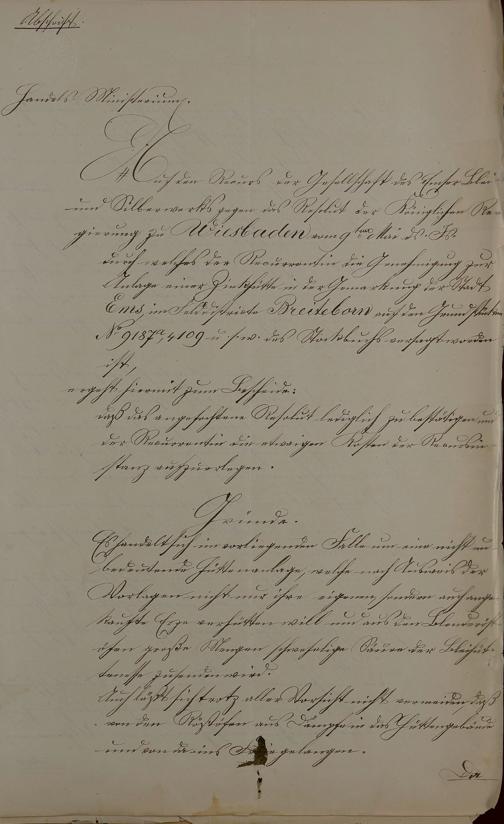 Abschrift.
Handels Ministerium.
Auf den Recurs der Gesellschaft des Emser Blei-
und Silberwerks gegen das Resolut der Königlichen Re-
gierung zu Wiesbaden vom 9ten Mai ds. Js.
durch welches der Recurrentin die Genehmigung zur
Anlage einer Zinkhütte in der Gemarkung der Stadt
Ems, im Felddistricte Breiteborn auf den Grundstücken
No 9187a, 4109 u. s. w. des Stockbuchs versagt worden
ist,
ergeht hiermit zum Bescheide:
daß das angefochtene Resolut lediglich zu bestätigen und
der Recurrentin die etwaigen Kosten der Recursin-
stanz aufzuerlegen.
Gründe.
Es handelt sich im vorliegenden Falle um eine nicht un-
bedeutende Hüttenanlage, welche nach Ausweis der
Vorlagen nicht nur ihre eigenen, sondern auch ange-
kaufte Erze verhütten will und aus den Blenderöst-
öfen große Mengen schweflige Säure der
zusenden wird.
Auch läßt sich trotz aller Vorsicht nicht vermeiden daß
von den Röstöfen aus Dämpfe in das Hüttengebäude
und von da ins Freie gelangen.
Da